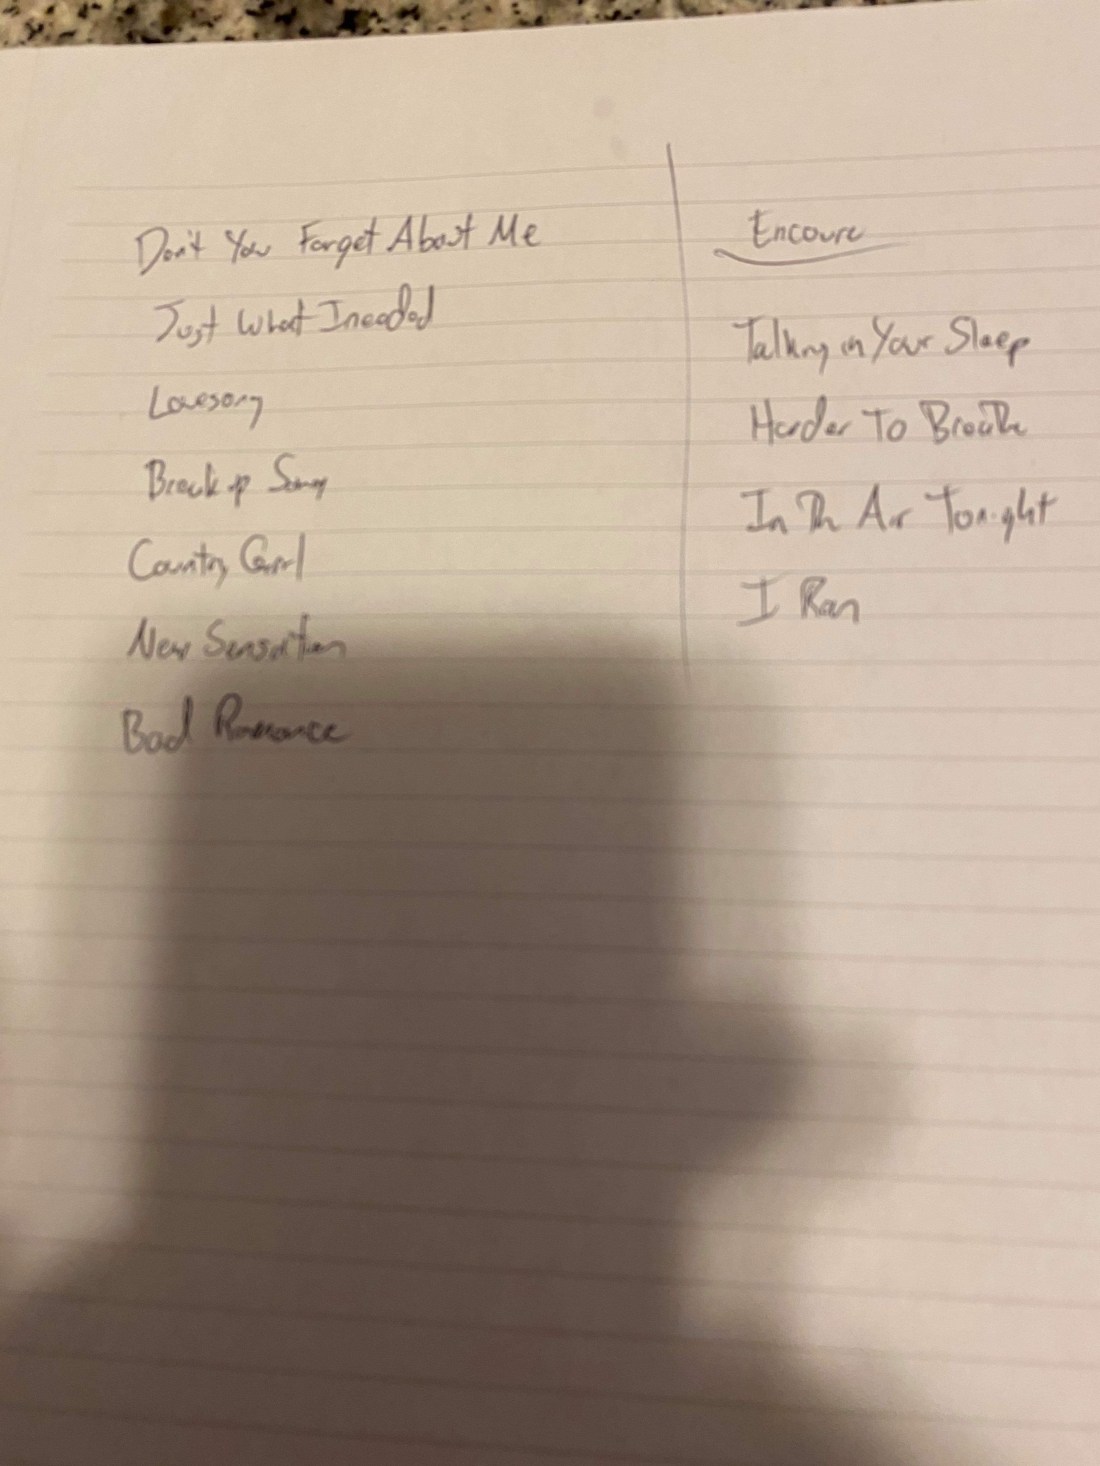 Don't You Forget About Me
Just What I needed
Lovesong
Breakup Song
Country Girl
New Sensation
Bad Romance
Encoure
Talking in Your Sleep
Harder To Breathe
In Th Air Tonight
I Ran